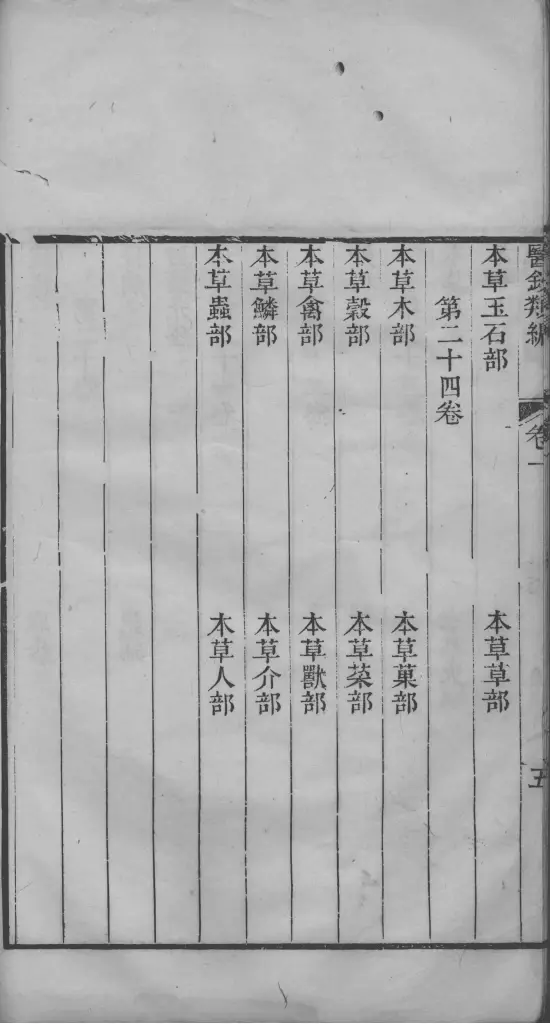 醫鈔類編 卷一 五
本草玉石部 本草草部
第二十四卷
本草木部 本草菓部
本草穀部 本草菜部
本草禽部 本草獸部
本草鱗部 本草介部
本草蟲部 本草人部